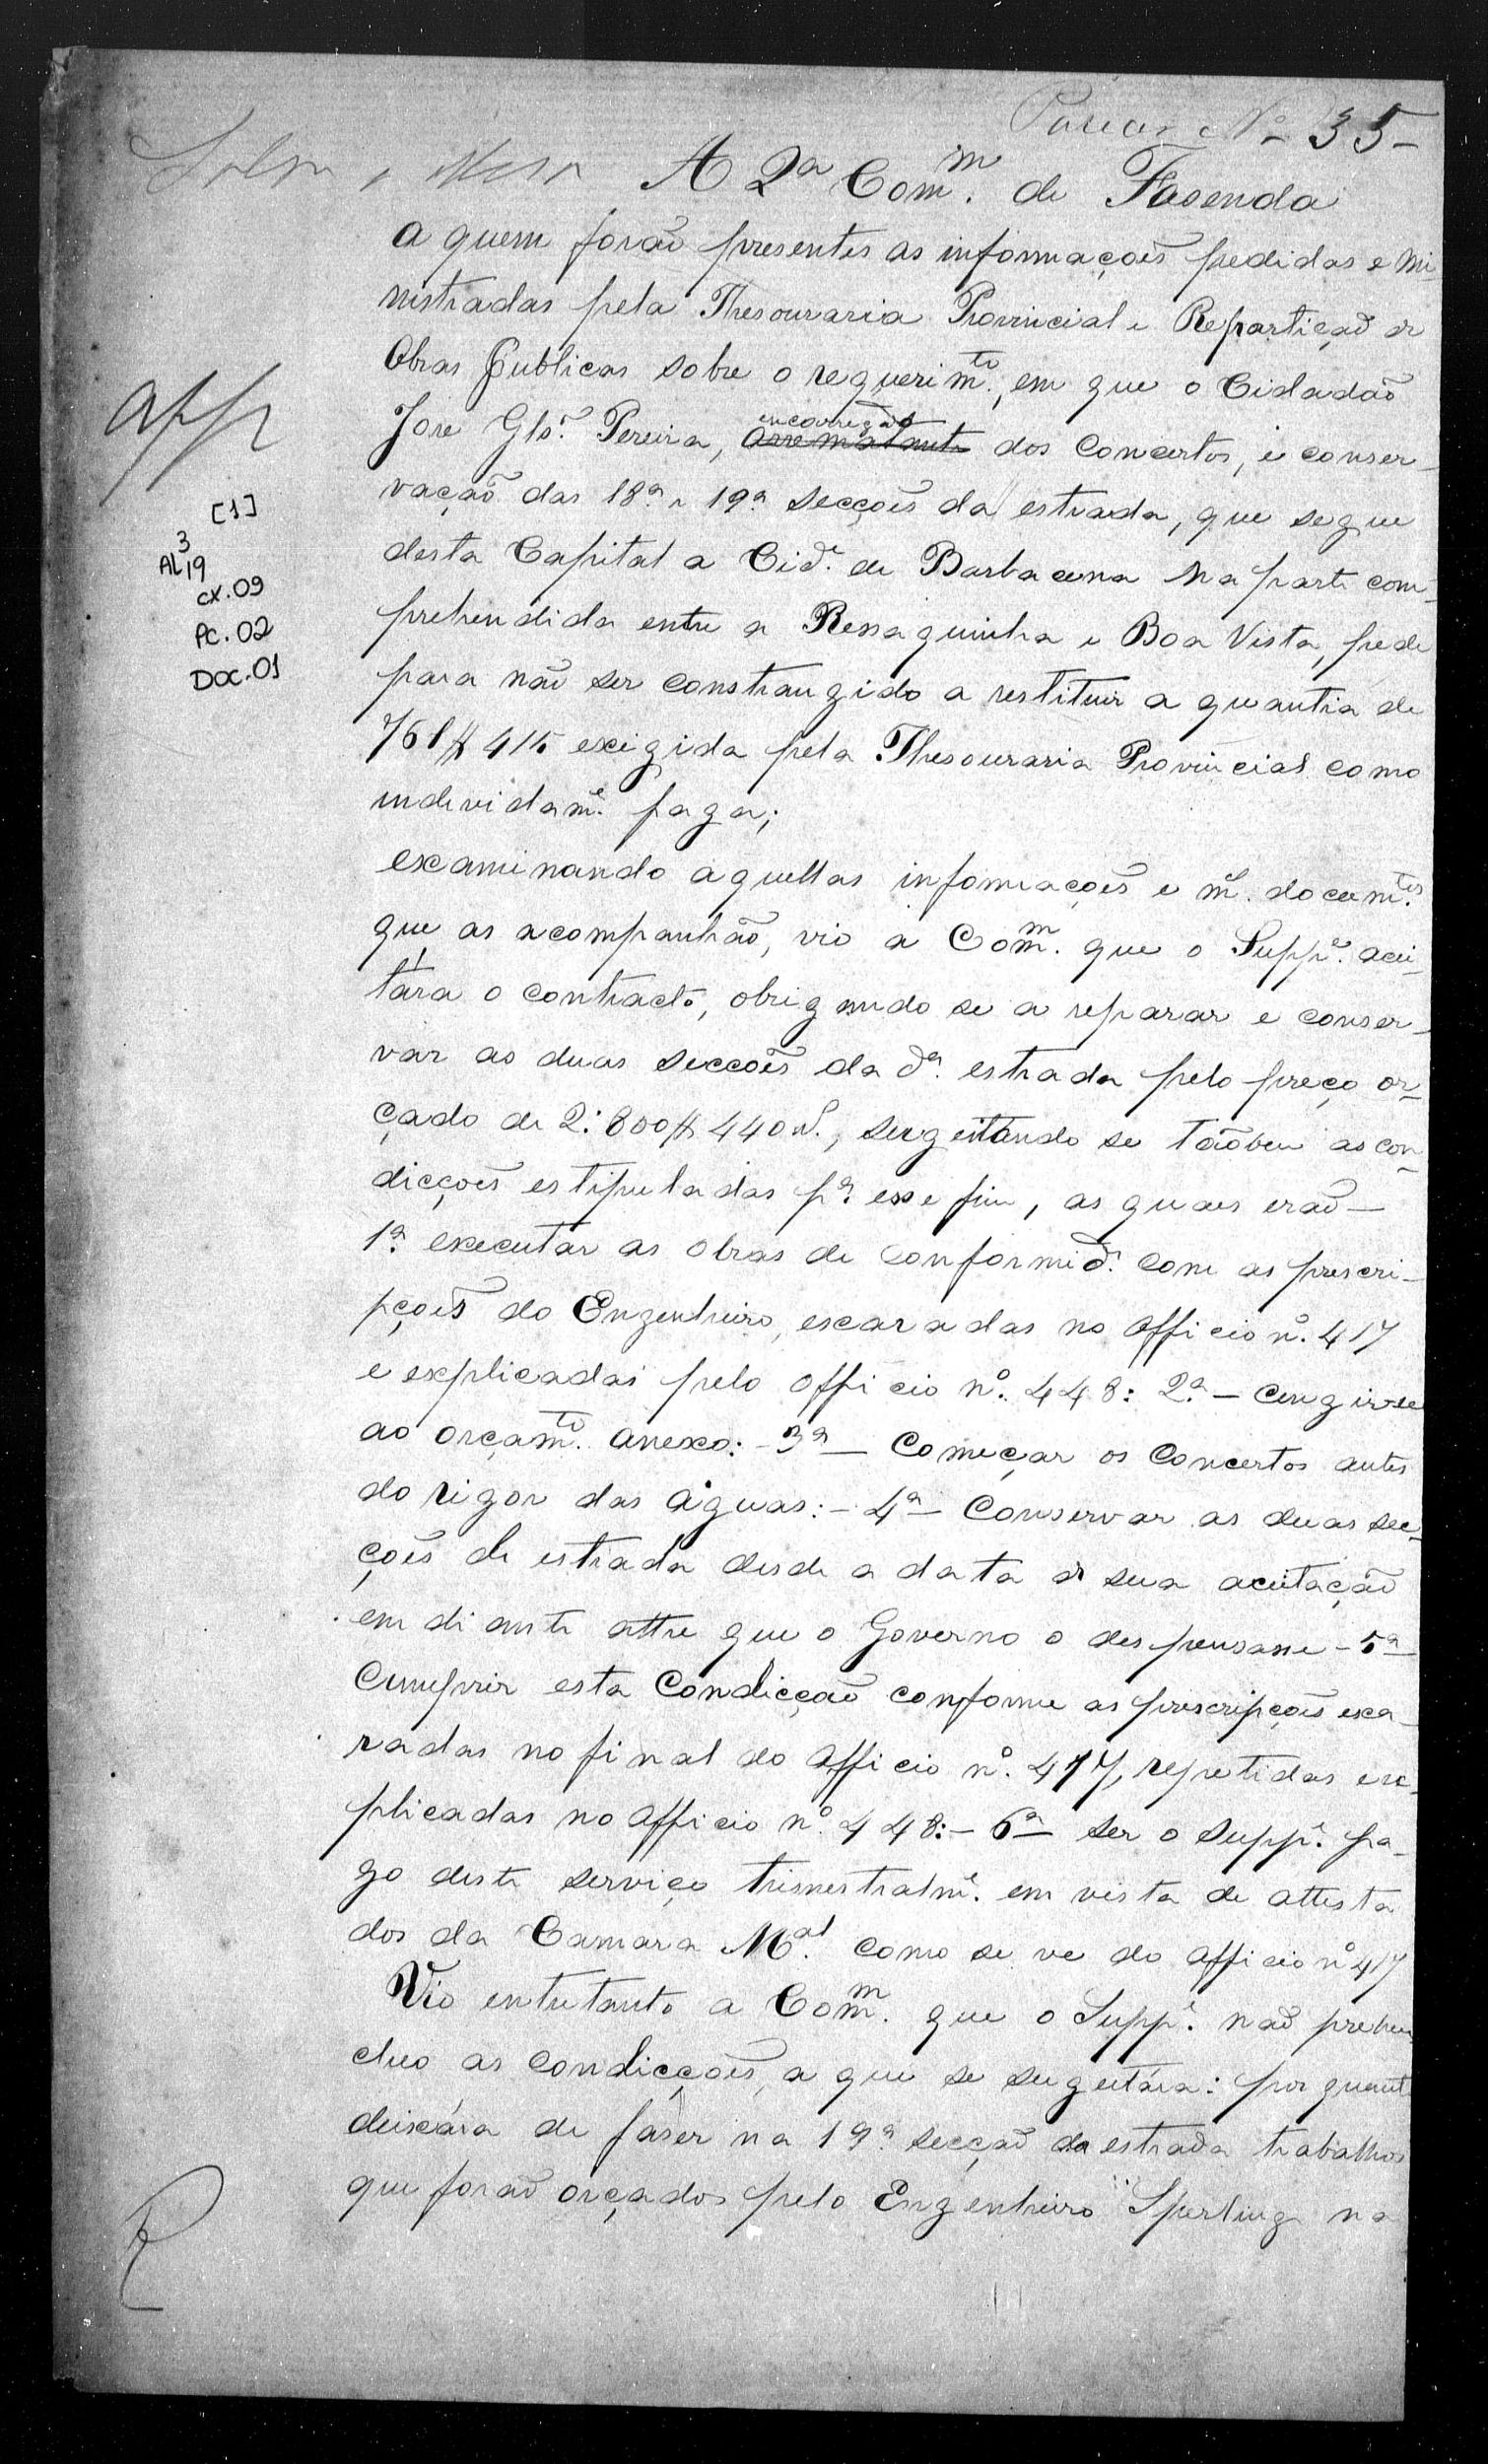 Parecer Nº 35-
Sobre a Mesa
A 2ª Comm. de Fasenda
a quem forão presentes as informações pedidas e mi
nistradas pela Thesouraria Provincial e Repartição de
Obras Publicas sobre o requerimto., em que o Cidadão
Jose Glz. Pereira, encarregado arrematante dos Concertos, e conser-
vação das 18ª e 19ª secções da estrada, que segue
desta Capital a Cide. de Barbacena na parte com-
prehendida entre a Ressaquinha e Boa Vista, pede
para não ser constrangido a restituir a quantia de
761$415 exigida pela Thesouraria Provincial como
indevidame. paga;
examinando aquellas informações e ms. documtos.
que as acompanhão, vio a Comm. que o Suppe. acei-
tára o contracto, obrigando se a reparar e conser-
var as duas secções da da. estrada pelo preço or-
çado de 2:800$440 rs., sugeitando se tãobem as con-
dicções estipuladas pª. esse fim, as quaes erão—
1ª. executar as obras de conformide. com as prescri-
pções do Engenheiro, escaradas no officio nº. 417
e explicadas pelo officio nº. 448: 2ª.— Cingir se
ao orçamto. anexo:- 3ª— Começar os Concertos antes
do rigor das agúas:- 4ª— Conservar as duas sec-
ções de estrada desde a data de sua aceitação
em diante athe que o Governo o despensasse - 5ª—
Cumprir esta Condicção conforme as prescripções esca-
radas no final do officio nº. 417, repetidas e ex-
plicadas no officio nº. 448:- 6ª— ser o suppe. pa-
go deste serviço trimestralme. em vista de attesta
dos da Camara Mal. como se ve do officio nº 417
Vio entretanto a Comm. que o Suppe. não prehen
cheo as condicções, a que se sugeitára: por quant
deixára de faser na 19ª. secção da estrada trabalhos
que forão orçados pelo Engenheiro Sperling na
app
[1]
3
AL19
cx.09
PC.02
DOC.01
R